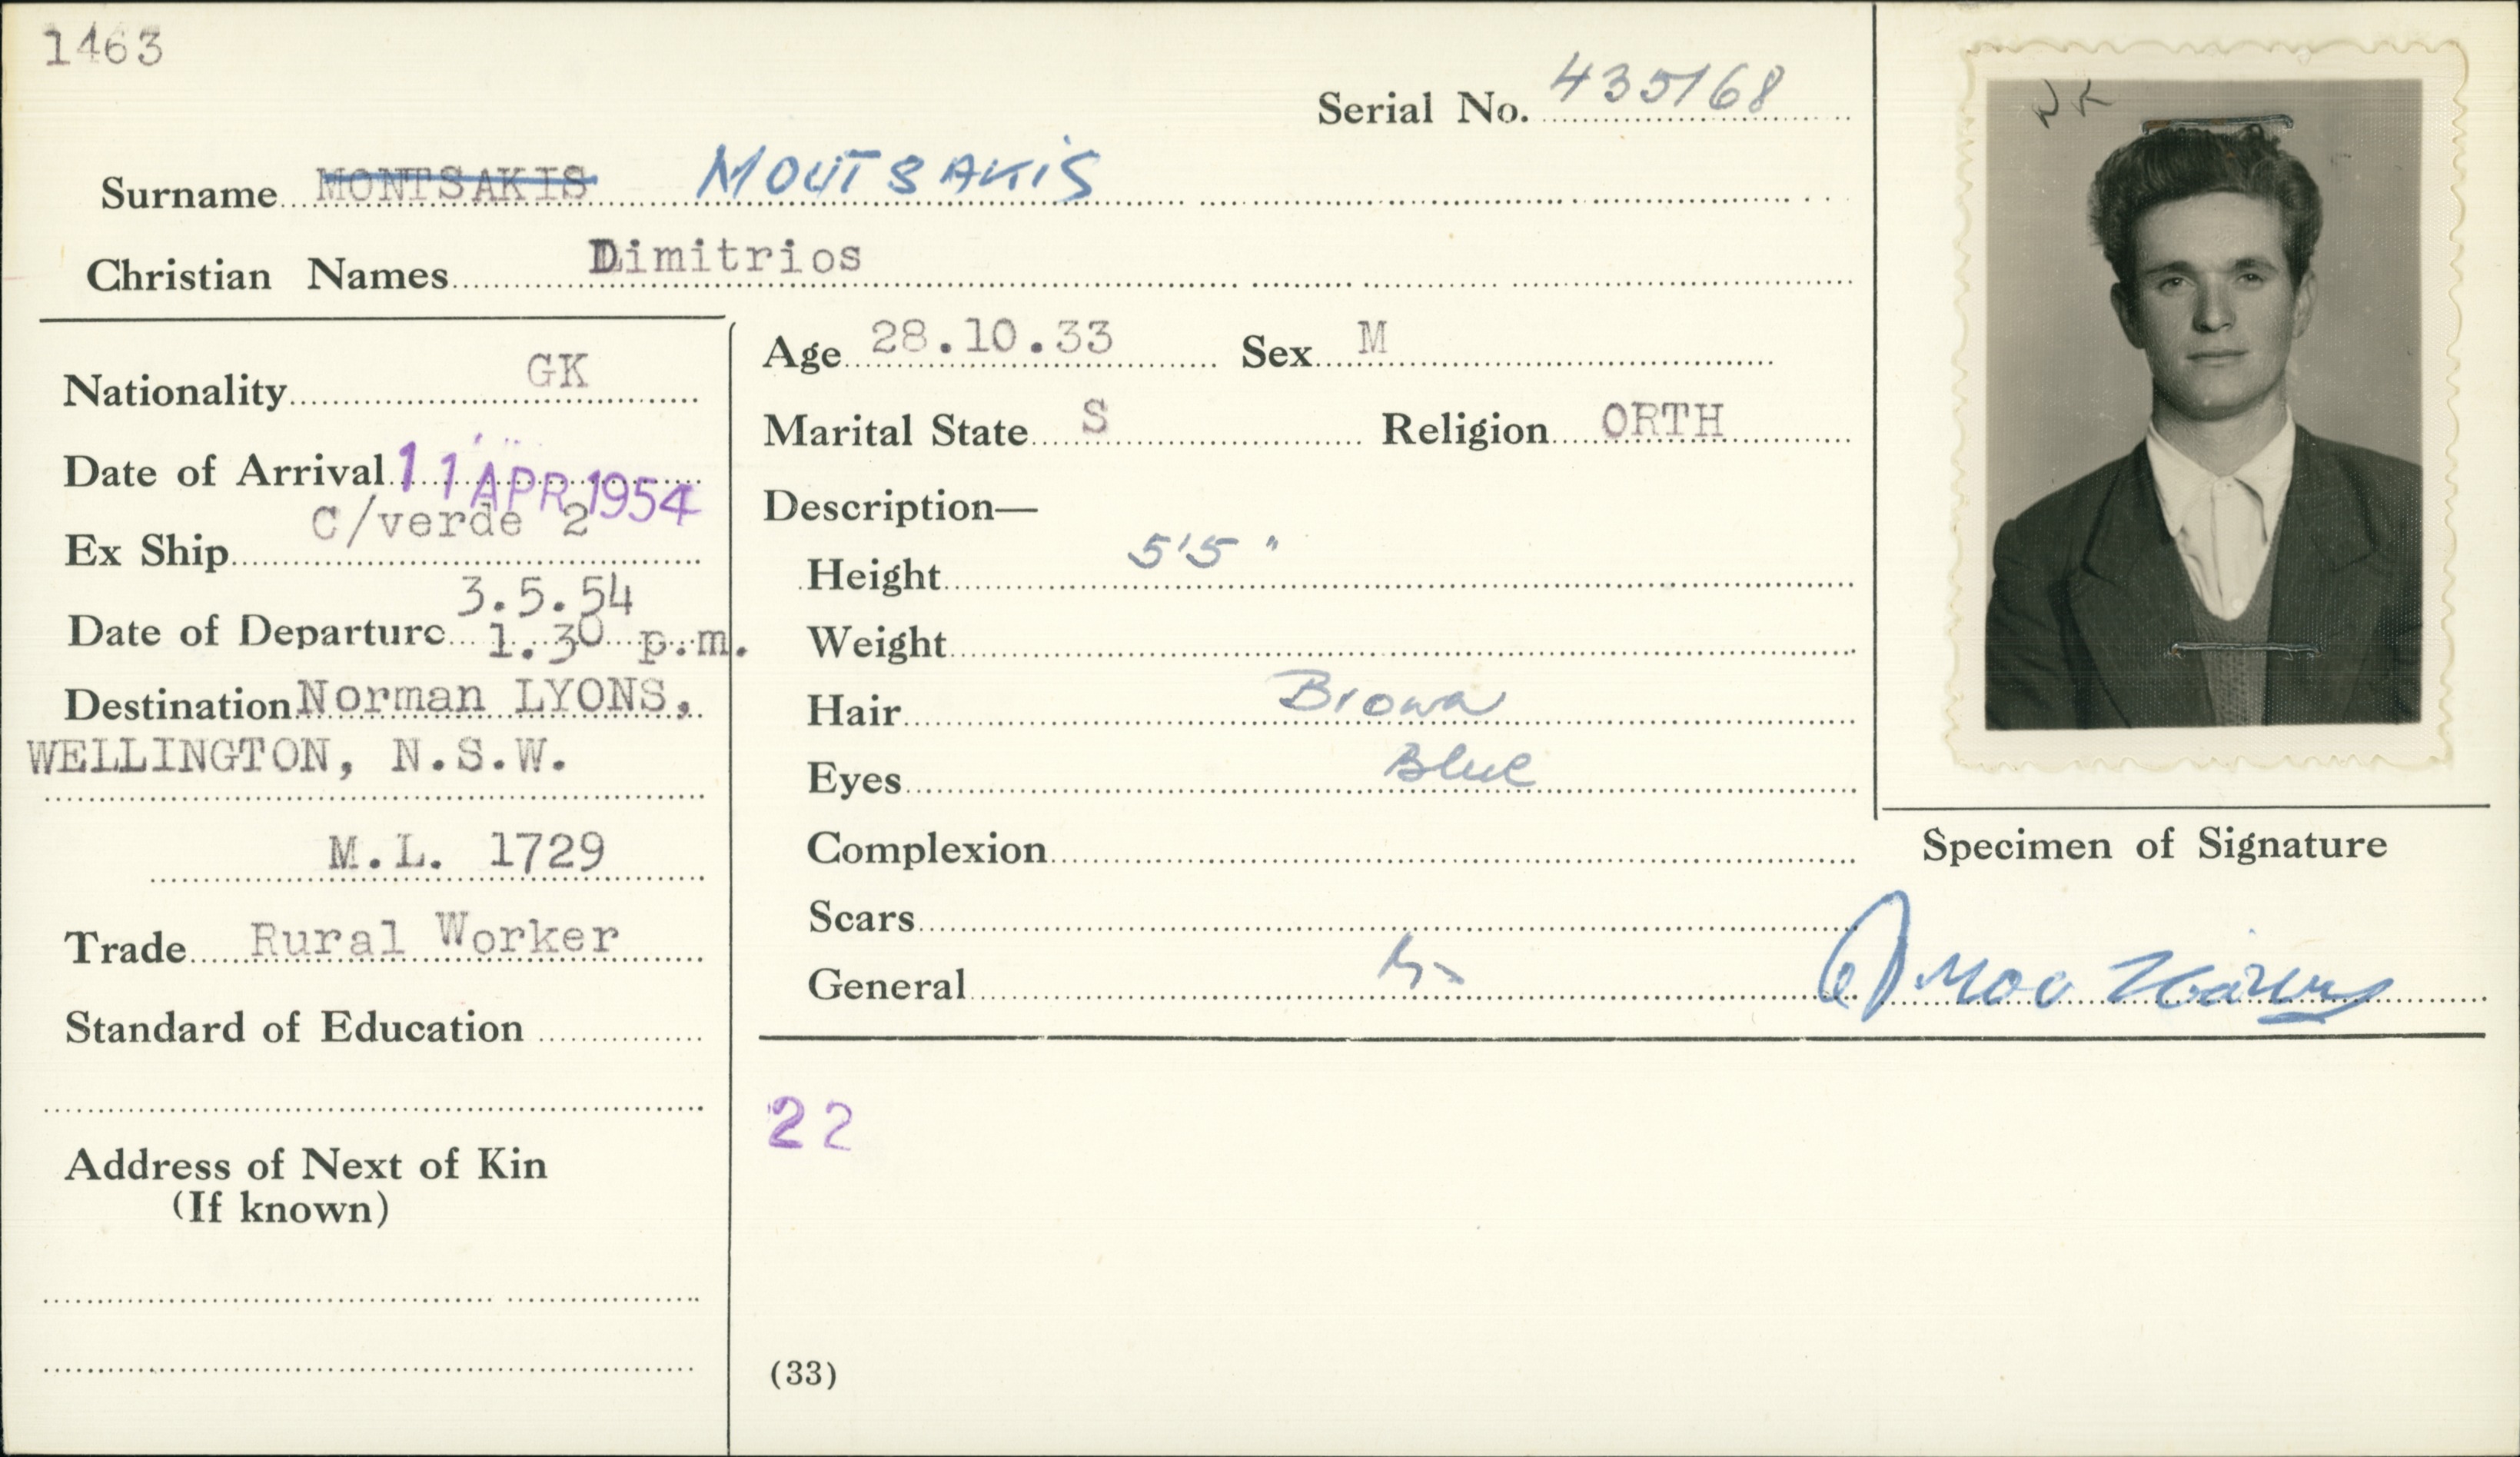 1463
Serial No. 435168
Surname MONTSAKIS MOUTSAKIS
Christian Names Dimitrios
Nationality GK
Date of Arrival 11 APR 1954
Ex Ship C/verde 2
Date of Departure 3.5.54
1.30 p.m.
Destination Norman LYONS,
WELLINGTON, N.S.W.
M.L. 1729
Trade Rural Worker
Standard of Education
Address of Next of Kin
(If known)
Age 28.10.33 Sex M
Marital State S Religion ORTH
Description—
Height 5'5"
Weight
Hair Brown
Eyes Blue
Complexion
Scars
General
22
(33)
Specimen of Signature